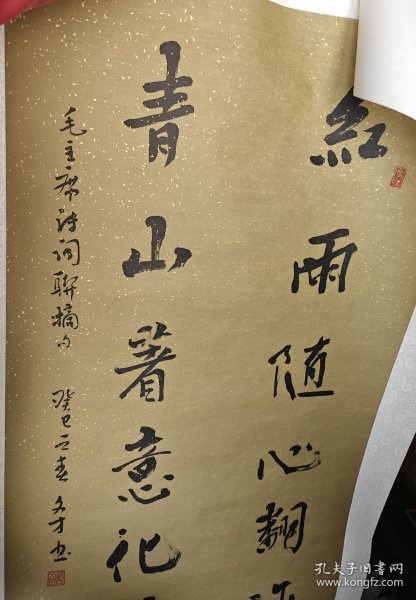 紅雨随心翻
青山著意化
毛主席诗词聯摘句
癸巳之春 文才书
孔夫子旧书网
www.kongfz.com